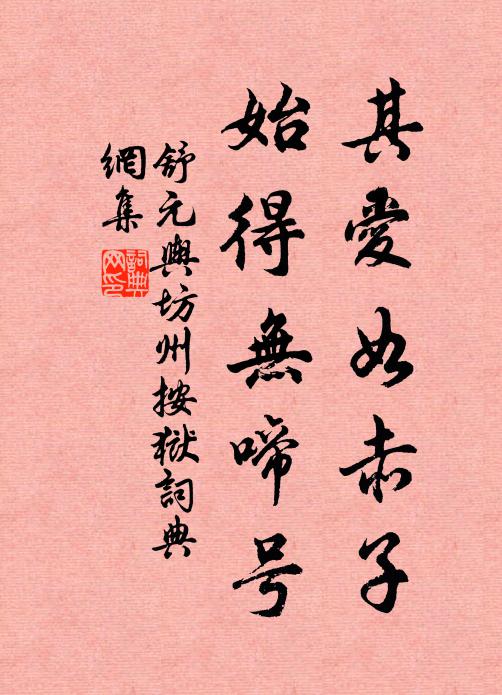 其愛如赤子
始得無啼号
舒元輿坊州按獄詞典
網集
詞典網印